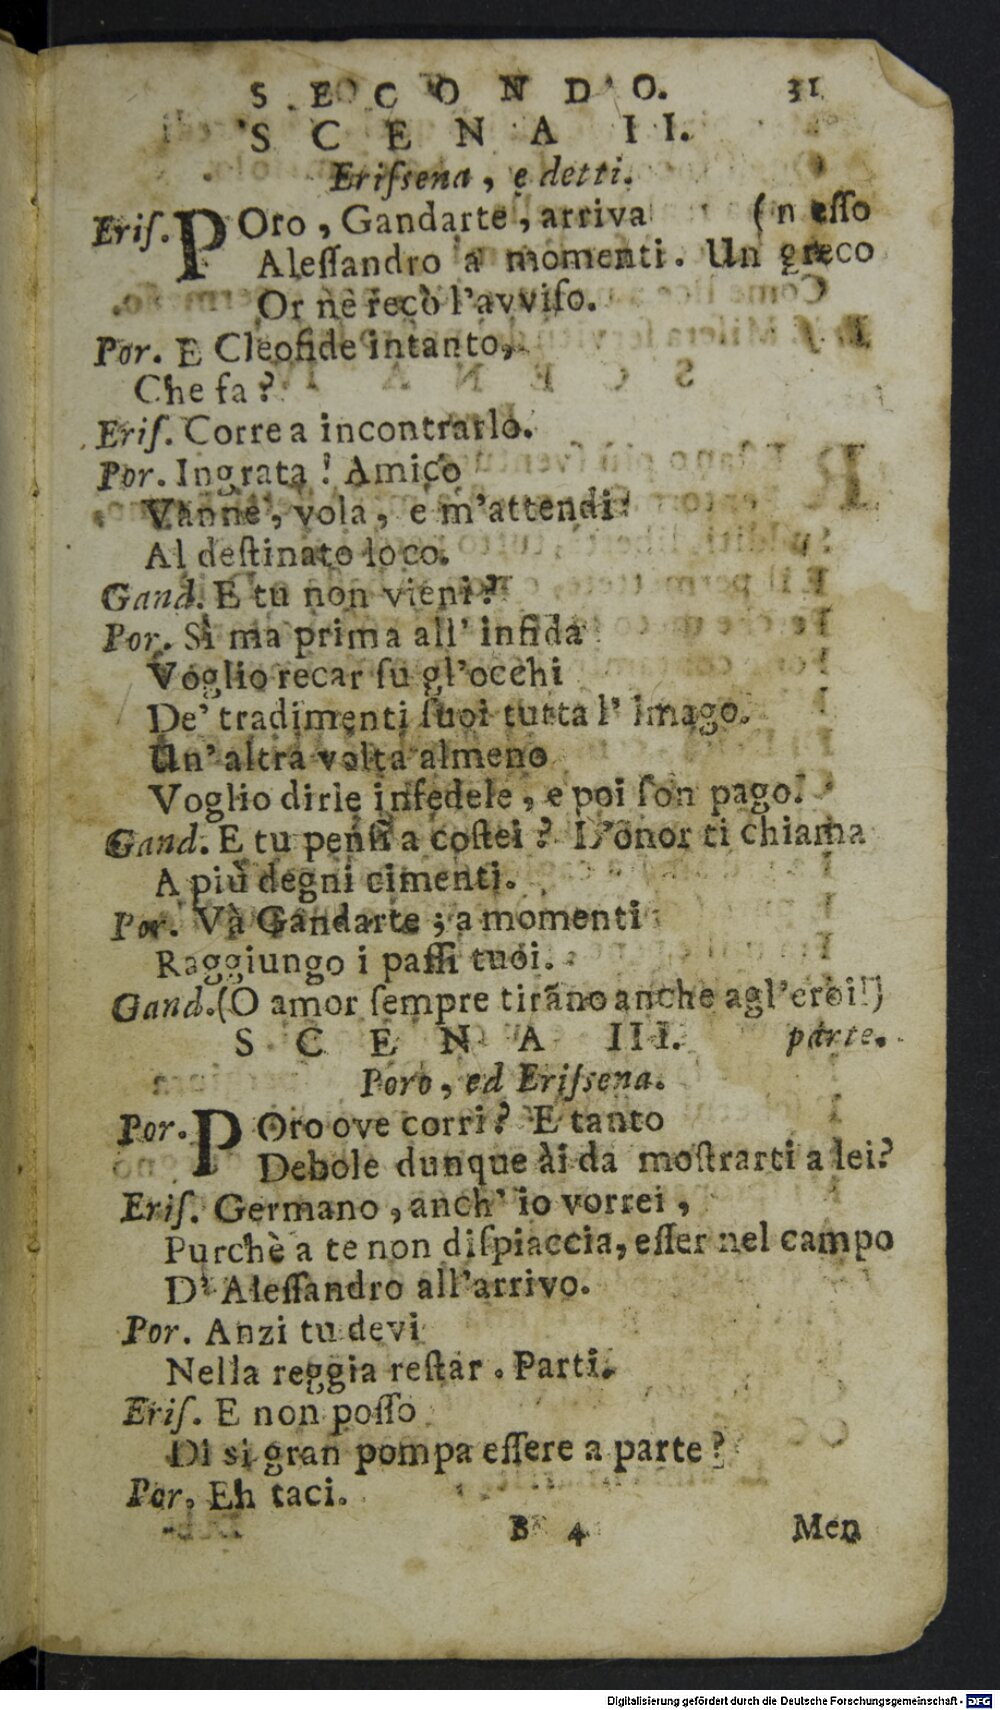 SECONDO. 31
SCENA II.
Eriſsena, e detti.
Eriſ. POro, Gandarte, arriva (n eſſo
Aleſſandro a momenti. Un greco
Or ne recò l'avviſo.
Por. E Cleofide intanto,
Che fa?
Eriſ. Corre a incontrarlo.
Por. Ingrata! Amico
Vanne, vola, e m'attendi
Al deſtinato loco.
Gand. E tu non vieni?
Por. Sì ma prima all' infida
Voglio recar ſu gl'occhi
De' tradimenti ſuoi tutta l' Imago.
Un' altra volta almeno
Voglio dirle infedele, e poi ſon pago.
Gand. E tu penſi a coſtei? L'onor ti chiama
A più degni cimenti.
Por. Và Gandarte; a momenti
Raggiungo i paſſi tuoi.
Gand. (O amor ſempre tirãno anche agl'eroi!)
SCENA III. parte.
Poro, ed Eriſsena.
Por. POro ove corri? E tanto
Debole dunque ài da moſtrarti a lei?
Eriſ. Germano, anch' io vorrei,
Purchè a te non diſpiaccia, eſſer nel campo
D' Aleſſandro all'arrivo.
Por. Anzi tu devi
Nella reggia reſtar. Parti.
Eriſ. E non poſſo
Di si gran pompa eſſere a parte?
Por. Eh taci.
B 4 Men
Digitalisierung gefördert durch die Deutsche Forschungsgemeinschaft - DFG